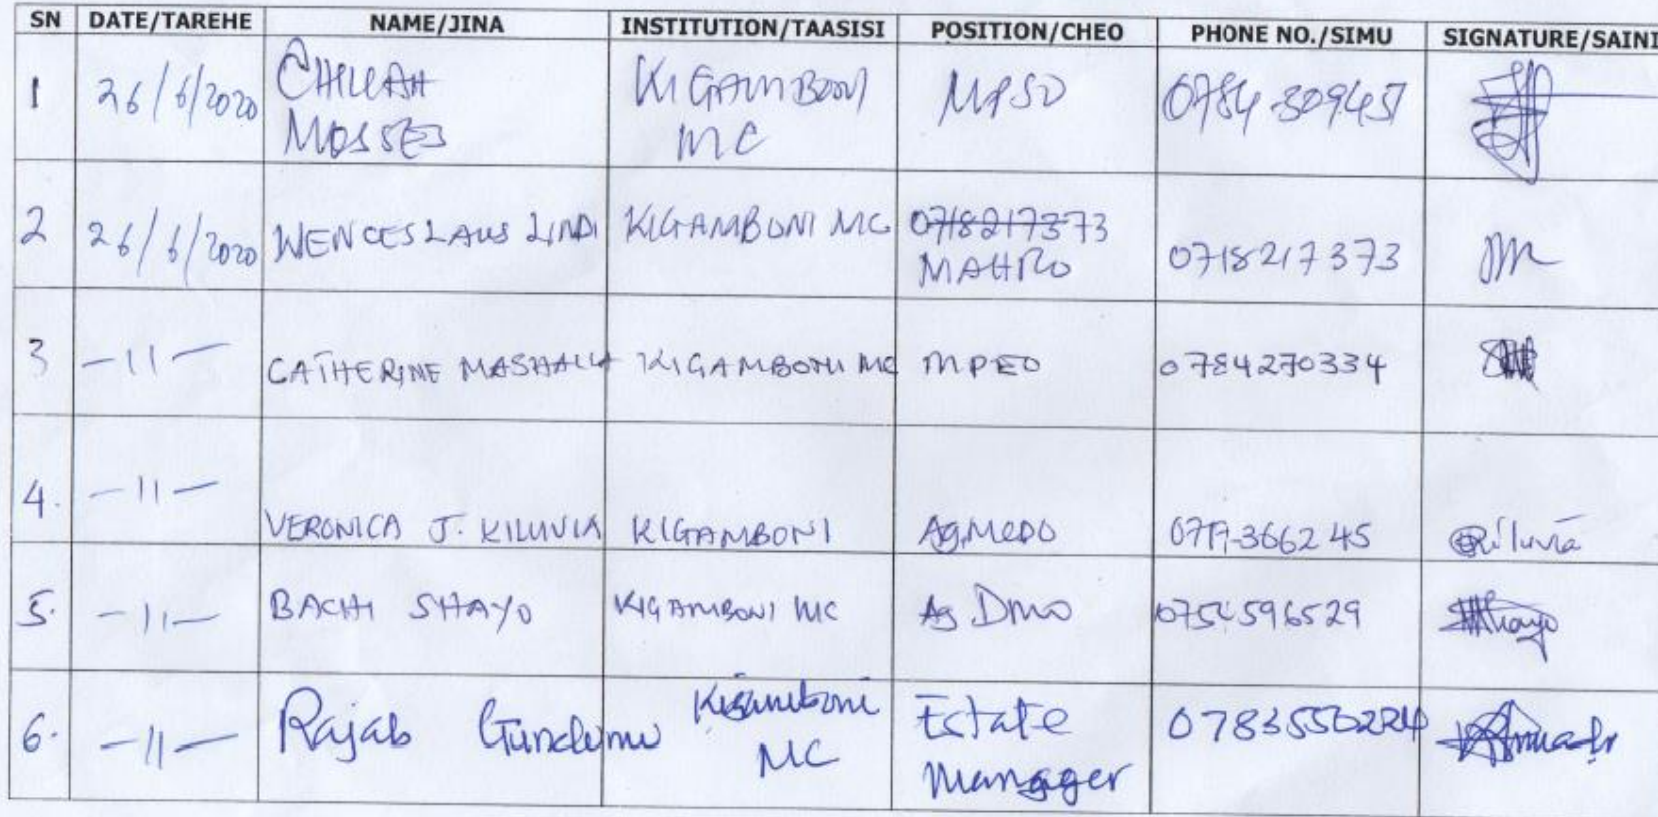 SN DATE/TAREHE NAME/JINA INSTITUTION/TAASISI POSITION/CHEO PHONE NO./SIMU SIGNATURE/SAINI
1 26/6/2020 CHILLAH KIGAMBONI MPSO 0784 309457
MOSSES MC
2 26/6/2020 WENCESLAUS LINDI KIGAMBONI MC 0718217373
MAHRO 0718217373
3 -11- CATHERINE MASHALLA KIGAMBONI MC MPEO 0784270334
4. -11- VERONICA J. KILUVIA KIGAMBONI Ag.MEDO
5. -11- BACHI SHAYO KIGAMBONI MC Ag DMO 0754596529
6. -11- Rajab Kigamboni Estate
MC Manager